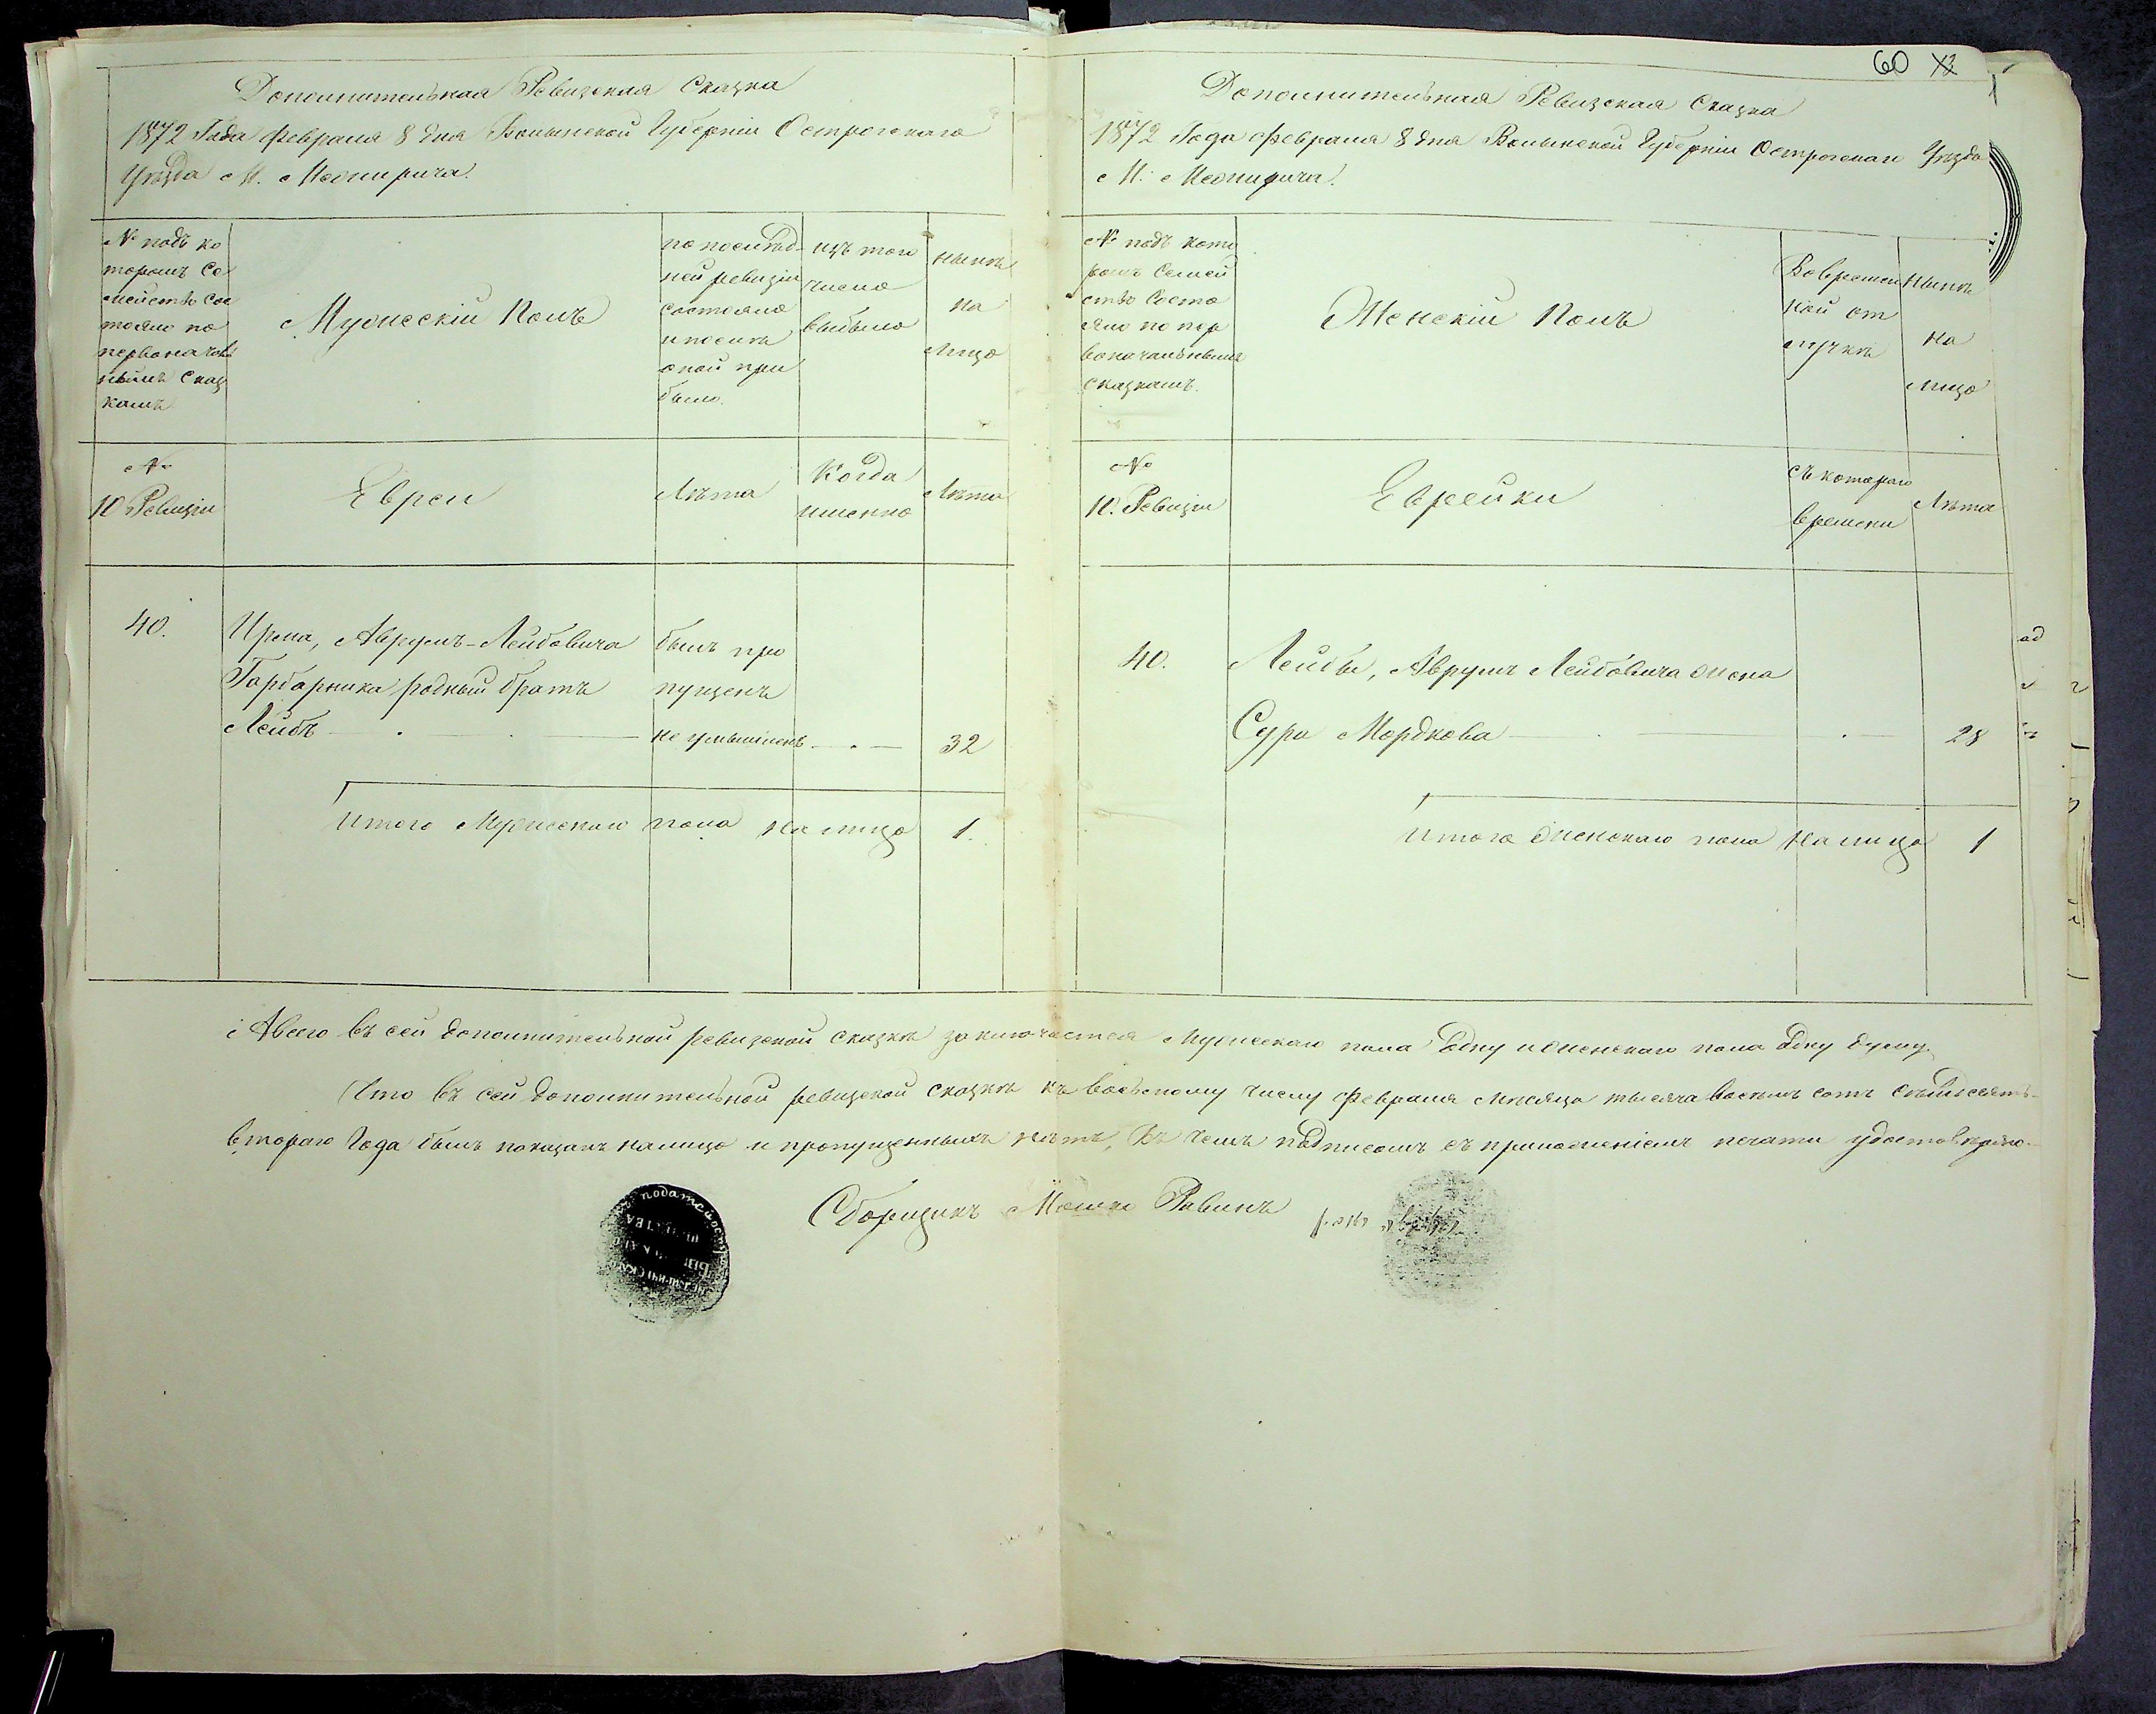 60 13
Дополнительная Ревизская Сказка
1872 Года Февраля 8 дня Волынской Губерніи Острогскаго
Уѣзда М. Межирича.
№ подъ ко
торомъ Се
мействo сос
тояло по
первоначаль
нымъ сказ
камъ
Мужескій Полъ
по послѣд
ней ревизіи
состояло
и послѣ
оной при
было.
изъ того
числа
выбыло
нынѣ
на
лицо
№
10 Ревизіи
Евреи
Лѣта
Когда
именно
Лѣта
40.
Аврумъ-Лейбовича
былъ про
Гарбарника родный братъ
пущенъ
Лейбъ
не умышленъ
32
Итого Мужескаго пола на лицо 1.
Дополнительная Ревизская Сказка
1872 Года Февраля 8 дня Волынской Губерніи Острогскаго Уѣзда
М. Межирича.
№ подъ кото
ромъ Семей
ство Состо
яло по пер
воначальнымъ
сказкамъ.
Женскій Полъ
Во времен
ной от
лучкѣ
Нынѣ
на
лицо
№
10. Ревизіи
Еврейки
съ котораго
времени
Лѣта
40.
Лейбы, Аврумъ Лейбовича жена
Сура Мордкова
28
Итого женскаго пола на лицо 1
А всего въ сей дополнительной ревизской сказкѣ заключается Мужескаго пола Одну и женскаго пола Одну душу.
Что въ сей дополнительной ревизской сказкѣ къ восьмому числу Февраля мѣсяца тысяча восемь сотъ семьдесятъ
втораго Года былъ показанъ налицо и пропущенныхъ нѣтъ, Въ чемъ подписомъ съ приложеніемъ печати удостовѣряю
Сборщикъ Мошко Рабинъ